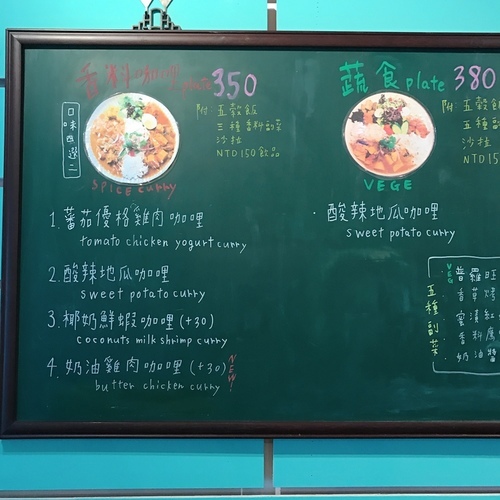 香料咖哩 plate 350
口味四選二
附: 五穀飯
三種香料副菜
沙拉
NTD150飲品
SPICE CURRY
1. 蕃茄優格雞肉咖哩
tomato chicken yogurt curry
2. 酸辣地瓜咖哩
sweet potato curry
3. 椰奶鮮蝦咖哩 (+30)
coconuts milk shrimp curry
4. 奶油雞肉咖哩 (+30) NEW!
butter chicken curry
蔬食 plate 380
附: 五穀飯
五種副
沙拉
NTD15
VEGE
· 酸辣地瓜咖哩
sweet potato curry
五種副菜
VEG
普羅旺
香草烤
蜜漬紅
香料鷹
奶油醬